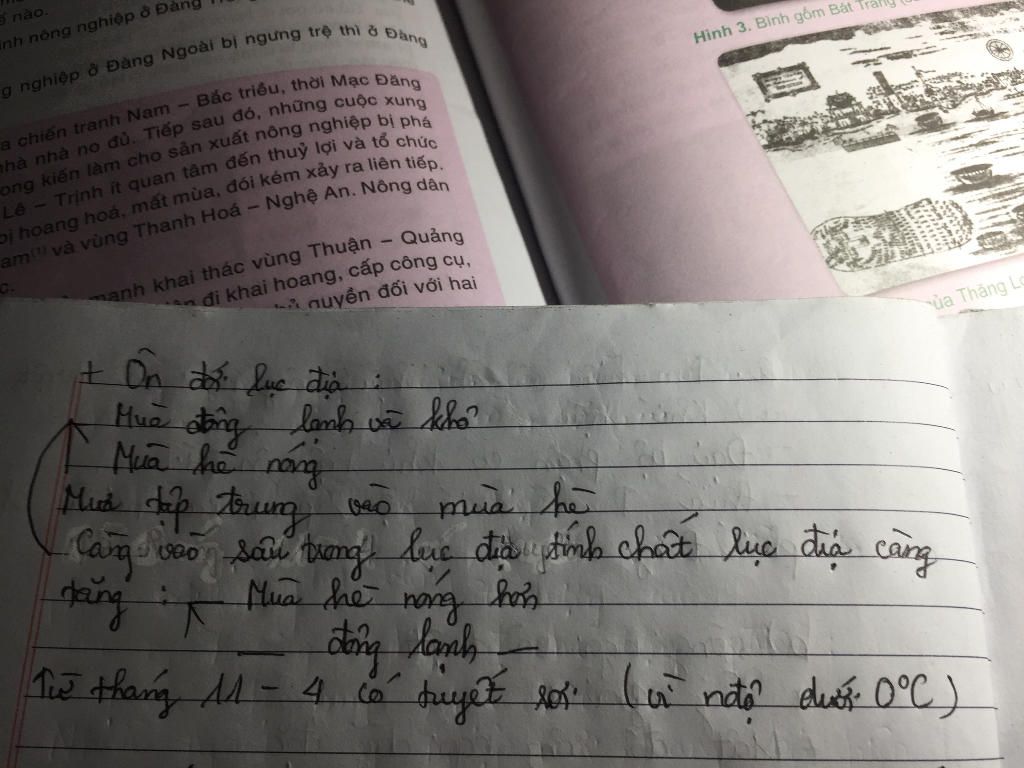 ế nào.
nh nông nghiệp ở Đàng
g nghiệp ở Đàng Ngoài bị ngưng trệ thì ở Đàng
a chiến tranh Nam – Bắc triều, thời Mạc Đăng
nhà nhà no đủ. Tiếp sau đó, những cuộc xung
ong kiến làm cho sản xuất nông nghiệp bị phá
Lê – Trịnh ít quan tâm đến thuỷ lợi và tổ chức
bị hoang hoá, mất mùa, đói kém xảy ra liên tiếp.
am(1) và vùng Thanh Hoá – Nghệ An. Nông dân
c.
mạnh khai thác vùng Thuận – Quảng
đi khai hoang, cấp công cụ,
quyền đối với hai
Hình 3. Bình gốm Bát Tràng
của Thăng Lo
+ Ôn đới lục địa :
Mùa đông lạnh và khô
Mùa hè nóng
Mưa tập trung vào mùa hè
Càng vào sâu trong lục địa tính chất lục địa càng
tăng : — Mùa hè nóng hơn
— đông lạnh —
Từ tháng 11 – 4 có tuyết rơi (vì nđộ dưới 0°C)